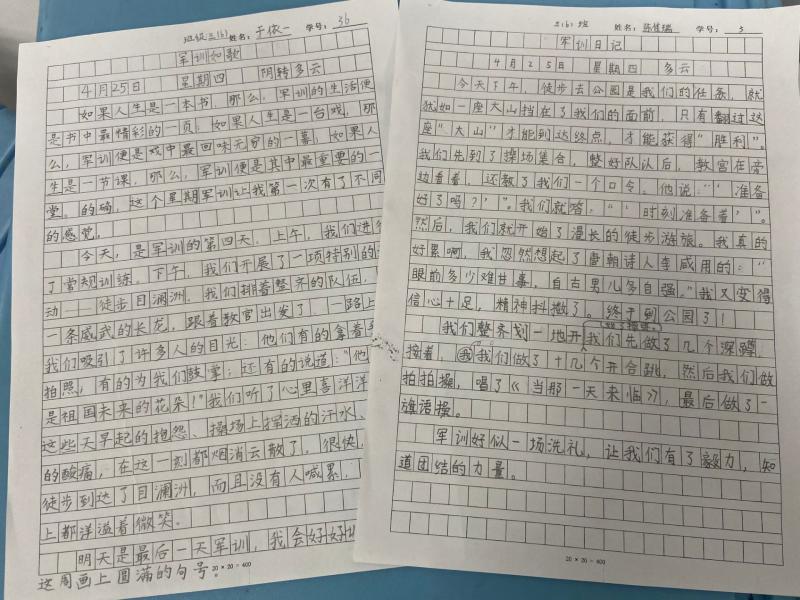 班级 三(6) 姓名: 于依一 学号: 36
军训如歌
4月25日 星期四 阴转多云
如果人生是一本书，那么，军训的生活便
是书中最精彩的一页；如果人生是一台戏，那
么，军训便是戏中最回味无穷的一幕；如果人
生是一节课，那么，军训便是其中最重要的一
堂。的确，这个星期军训让我第一次有了不同
的感觉。
今天，是军训的第四天。上午，我们进行
了常规训练。下午，我们开展了一项特别的
动——徒步目澜洲。我们排着整齐的队伍，
一条威武的长龙，跟着教官出发了，一路上
我们吸引了许多人的目光：他们有的拿着
拍照，有的为我们鼓掌；还有的说道："他
是祖国未来的花朵！"我们听了心里喜洋洋
这些天早起的抱怨、操场上挥洒的汗水、
的酸痛，在这一刻都烟消云散了。很快，
徒步到达了目澜洲，而且没有人喊累，
上都洋溢着微笑。
明天是最后一天军训，我会好好
这周画上圆满的句号。
20×20=400
三(6)班 姓名: 学号: 3
军训日记
4月25日 星期四 多云
今天下午，徒步去公园是我们的任务，就
犹如一座大山挡在了我们的面前，只有翻过这
座"大山"才能到达终点，才能获得"胜利"。
我们先到了操场集合，整好队以后，教官在旁
边看着，还教了我们一个口令。他说："'准备
好了吗？'"。我们就答，"'时刻准备着'"。
然后，我们就开始了漫长的徒步游旅。我真的
好累啊，我忽然想起了唐朝诗人李咸用的："
眼前多少难甘事，自古男儿多自强。"我又变得
信心十足，精神抖擞了。终于到公园了！
我们整齐划一地开 我们先做了几个深蹲，
接着，我我们做了十几个开合跳，然后我们做
拍拍操，唱了《当那一天来临》，最后做了一
旗语操。
军训好似一场洗礼，让我们有了毅力，知
道团结的力量。
20×20=400